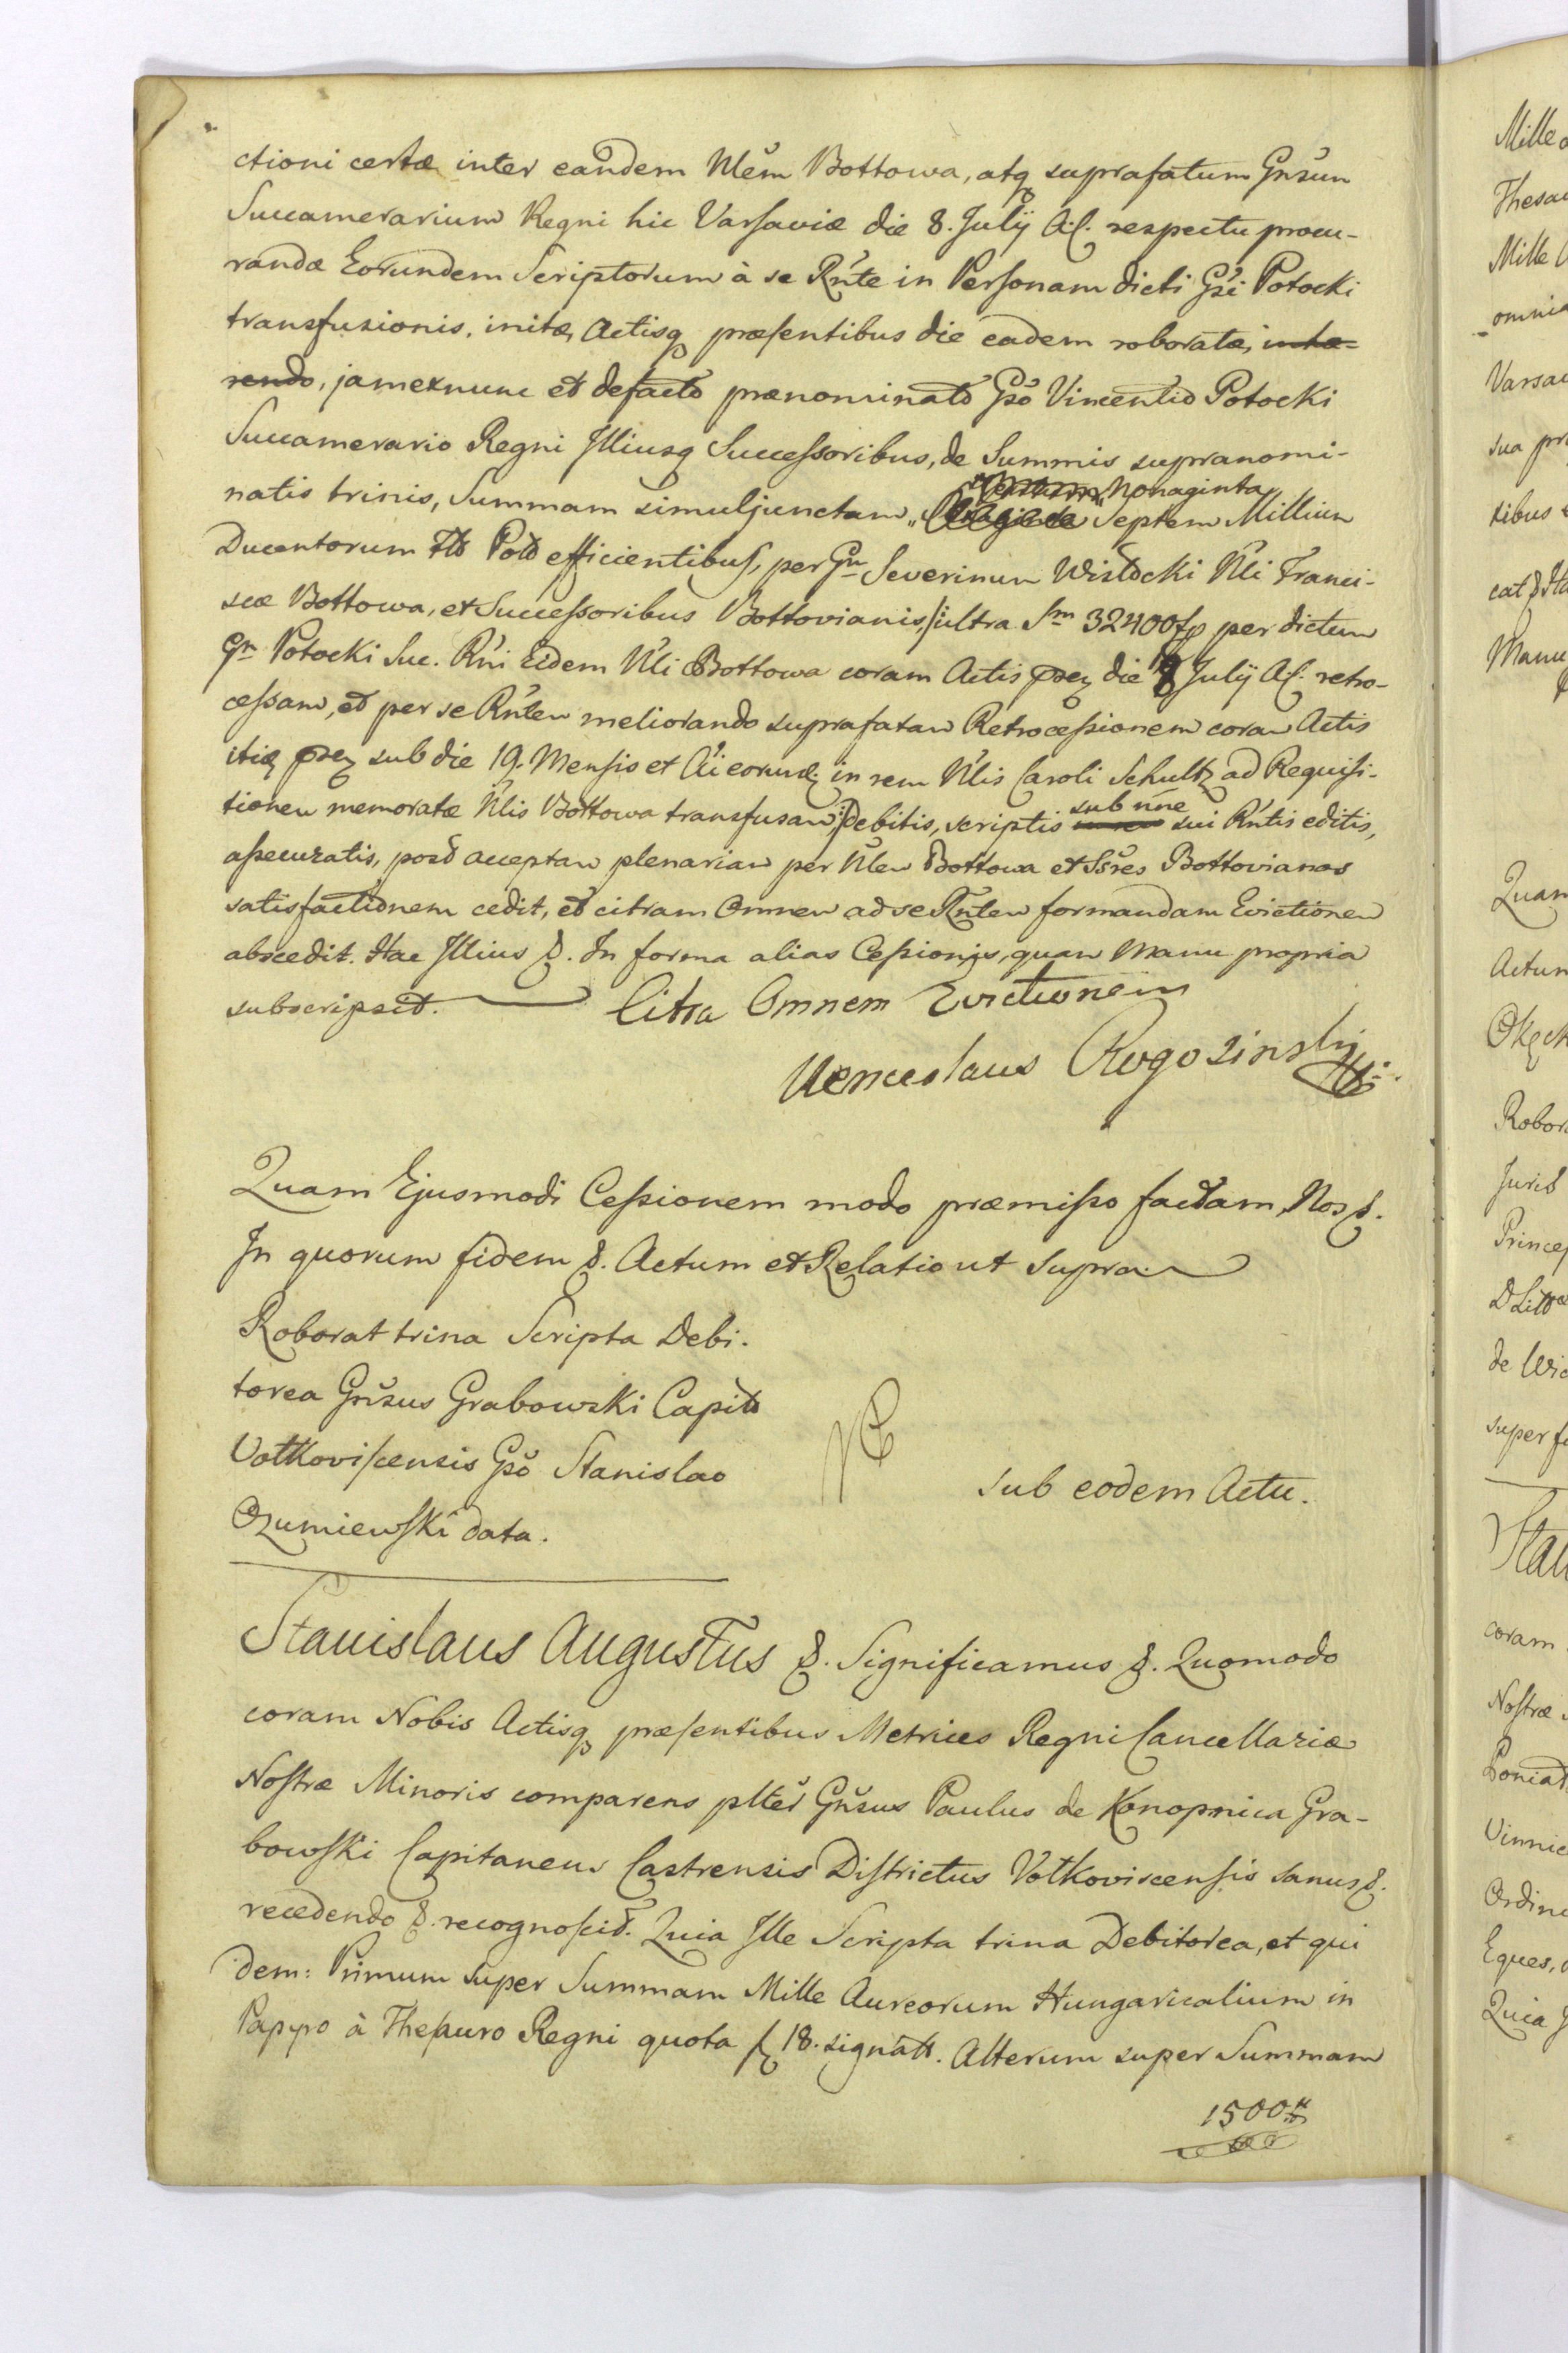 ctioni certæ inter eandem Mĕm Bottowa, atq suprafatum Gn̆sum
Succamerarium Regni hic Varsaviæ die 8. Julÿ A.C. respectu procu-
randæ Eorundem Scriptorum à se Rn̆te in Personam dicti Gsi Potocki
transfusionis, initæ, Actisq præsentibus die eadem roboratæ, inhæ-
rendo, jamexnunc et defacto prænominato Gsŏ Vincentio Potocki
Succamerario Regni Illiusq Successoribus, de Summis supranomi-
natis trinis, Summam simuljunctam „ Nonaginta
Septem Millium
Ducentorum Flo Polo efficientibus, per Gn̄ Severinum Wisłocki Mĭi Franci-
scæ Bottowa, et Successoribus Bottovianis, /:ultra Sm̄ 32400 fp per dictum
Gn̄ Potocki Suc. Rn̆i Eidem Mĭi Bottowa coram Actis præz die 8 Julÿ A.C. retro-
cessam, et per se Rn̆tem meliorando suprafatam Retrocessionem coram Actis
itiq præz sub die 19. Mensis et Ai eorund. in rem Mĭis Caroli Schultz ad Requisi-
tionem memoratæ Mĭis Bottowa transfusam:/ Debitis, scriptis sub nn̆e sui Rn̆tis editis,
assecuratis, post acceptam plenariam per Mĭem Bottowa et Ss̆res Bottovianos
satisfactionem cedit, et citram Omnem ad se Rn̆tem formandam Evictionem
abscedit. Hac Illius &. In forma alias Cessionis, quam Manu propria
subscripsit. Citra Omnem Evictionem
Venceslaus Rogoziński
Quam Ejusmodi Cessionem modo præmisso factam, Nos &.
In quorum fidem &. Actum et Relatio ut supra
Roborat trina Scripta Debi-
torea Gn̆sus Grabowski Capito
Vołkoviscensis Gsŏ Stanislao
Ozumiewski data.
Sub eodem Actu.
Stanislaus Augustus &. Significamus &. Quomodo
coram Nobis Actisq præsentibus Metrices Regni Cancellariæ
Nostræ Minoris comparens pltĕr Gn̆sus Paulus de Konopnica Gra-
bowski Capitaneus Castrensis Districtus Vołkoviscensis sanus &.
recedendo &. recognoscit. Quia Ille Scripta trina Debitorea, et qui
dem: Primum super Summam Mille Aureorum Hungaricalium in
Pappo à Thesauro Regni quota fl 18. signatt. Alterum super Summam
1500
Mille
Thesau
Mille
omnia
Varsav
sua pr
tibus
cat &
Manu
Quam
Actum
Robor
Juris
Princep
de
super f
Stan
coram
Nostræ
Poniat
Vinnic
Ordin
Eques,
Quia